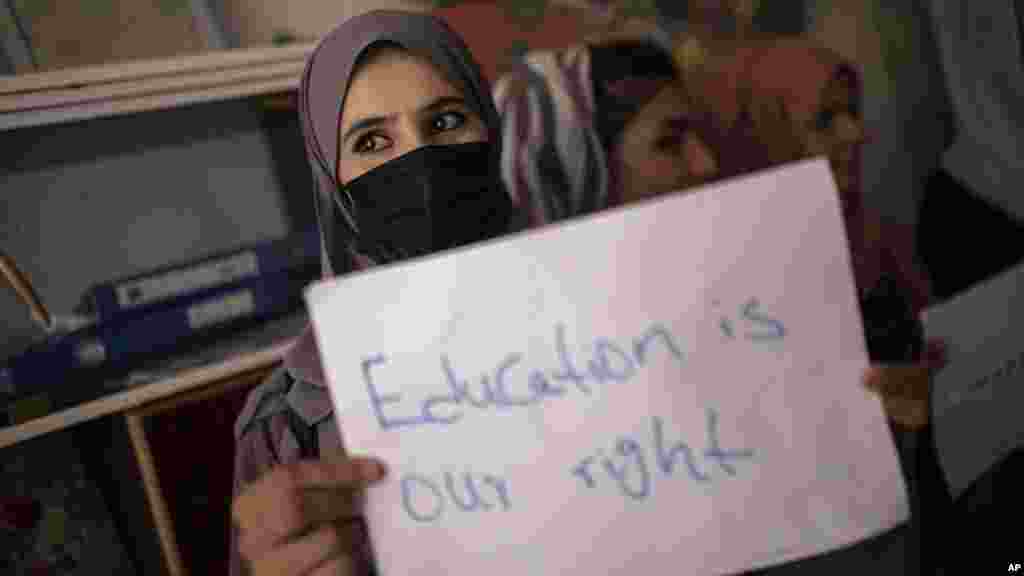 Education is
our right
AP